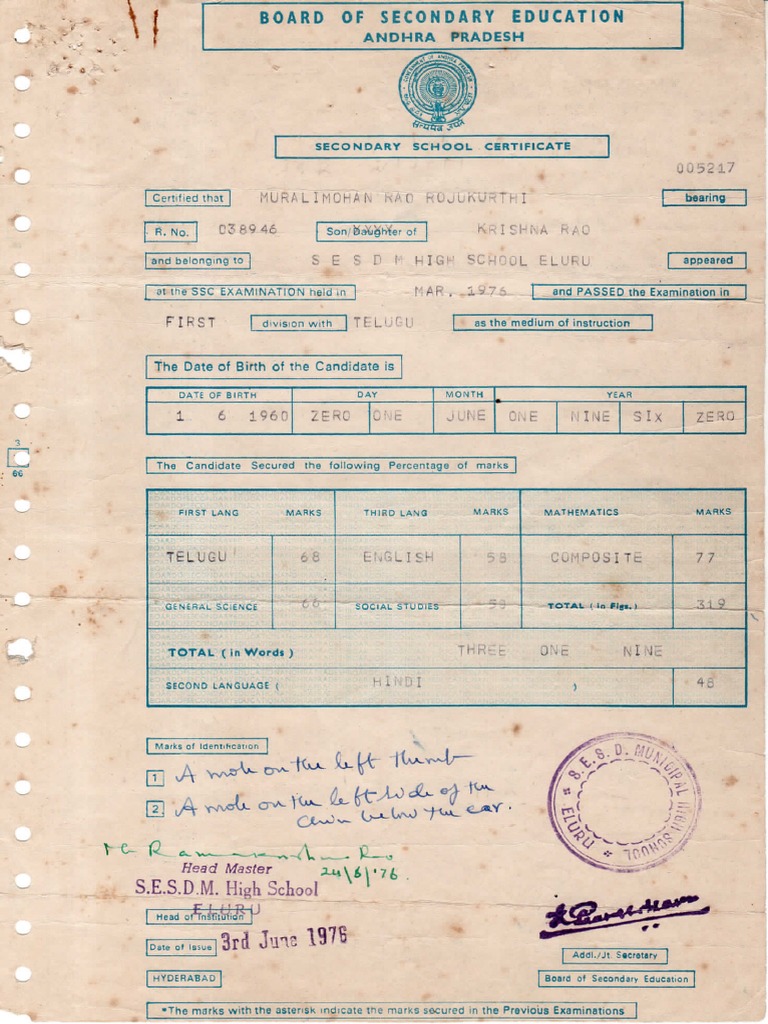 BOARD OF SECONDARY EDUCATION
ANDHRA PRADESH
GOVERNMENT OF ANDHRA PRADESH
सत्यमेव जयते
SECONDARY SCHOOL CERTIFICATE
005217
Certified that MURALIMOHAN RAO ROJUKURTHI bearing
R. No. 038946 Son/Daughter of KRISHNA RAO
and belonging to S E S D M HIGH SCHOOL ELURU appeared
at the SSC EXAMINATION held in MAR, 1976 and PASSED the Examination in
FIRST division with TELUGU as the medium of instruction
The Date of Birth of the Candidate is
DATE OF BIRTH DAY MONTH YEAR
1 6 1960 ZERO ONE JUNE ONE NINE SIX ZERO
3
66
The Candidate Secured the following Percentage of marks
FIRST LANG MARKS THIRD LANG MARKS MATHEMATICS MARKS
TELUGU 68 ENGLISH 58 COMPOSITE 77
GENERAL SCIENCE 66 SOCIAL STUDIES 50 TOTAL (in Figs.) 319
TOTAL (in Words) THREE ONE NINE
SECOND LANGUAGE ( HINDI ) 48
Marks of Identification
1 A mole on the left thumb
2 A mole on the left side of the
chin below the ear.
S.E.S.D. MUNICIPAL HIGH SCHOOL
ELURU
24/6/76.
Head Master
S.E.S.D.M. High School
ELURU
Head of Institution
Date of Issue 3rd June 1976
HYDERABAD
Addl./Jt. Secretary
Board of Secondary Education
*The marks with the asterisk indicate the marks secured in the Previous Examinations